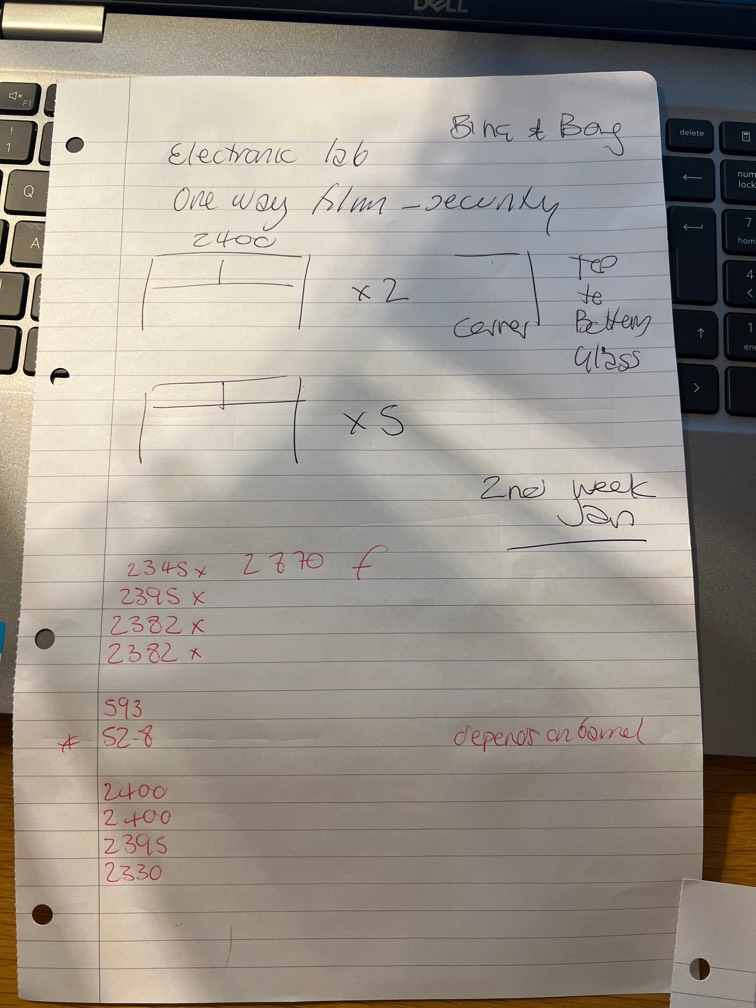 DELL
Bing & Bong
Electronic lab
One way film - security
2400
x 2
corner
Top
to
Bottom
Glass
x 5
2nd week
Jan
2345 x 2870 f
2395 x
2382 x
2382 x
593
* 52-8
depends on barrel
2400
2400
2395
2330
F1
!
1
Q
A
delete
num
lock
7
hom
4
<
1
en